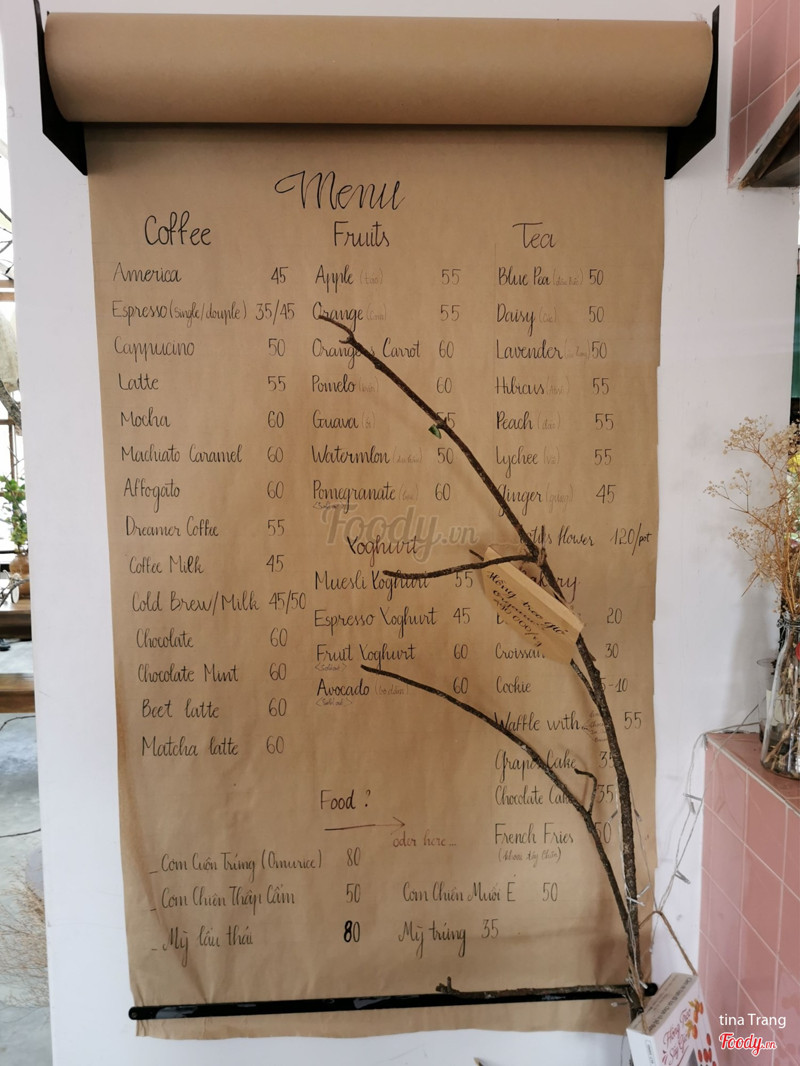 Menu
Coffee
America 45
Espresso (single/douple) 35/45
Cappucino 50
Latte 55
Mocha 60
Machiato Caramel 60
Affogato 60
Dreamer Coffee 55
Coffee Milk 45
Cold Brew/Milk 45/50
Chocolate 60
Chocolate Mint 60
Beet latte 60
Matcha latte 60
Fruits
Apple (táo) 55
Orange (cam) 55
Orange & Carrot 60
Pomelo 60
Guava (ổi) 55
Watermlon (dưa hấu) 50
Pomegranate (lựu) 60
Yoghurt
Muesli Yoghurt 55
Espresso Yoghurt 45
Fruit Yoghurt 60
Avocado 60
Tea
Blue Pea (đậu biếc) 50
Daisy (cúc) 50
Lavender 50
Hibicus 55
Peach (đào) 55
Lychee (vải) 55
Ginger (gừng) 45
flower 120/pot
20
30
Cookie
Waffle with 55
Grapes Cake 35
Chocolate Cake 35
French Fries
Food ?
oder here
_ Cơm Cuộn Trứng (Omurice) 80
_ Cơm Chiên Thập Cẩm 50
Cơm Chiên Muối É 50
_ Mỳ lẩu thái 80
Mỳ trứng 35
Foody.vn
tina Trang
Foody.vn